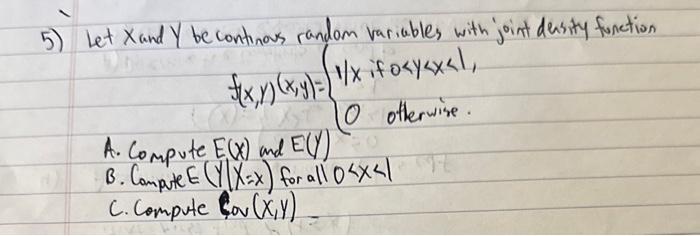 5) Let X and Y be continous random variables with joint density function
f(X,Y)(x,y)= { 1/x if 0<y<x<1,
0 otherwise.
A. Compute E(X) and E(Y)
B. Compute E(Y|X=x) for all 0<x<1
C. Compute Cov(X,Y)